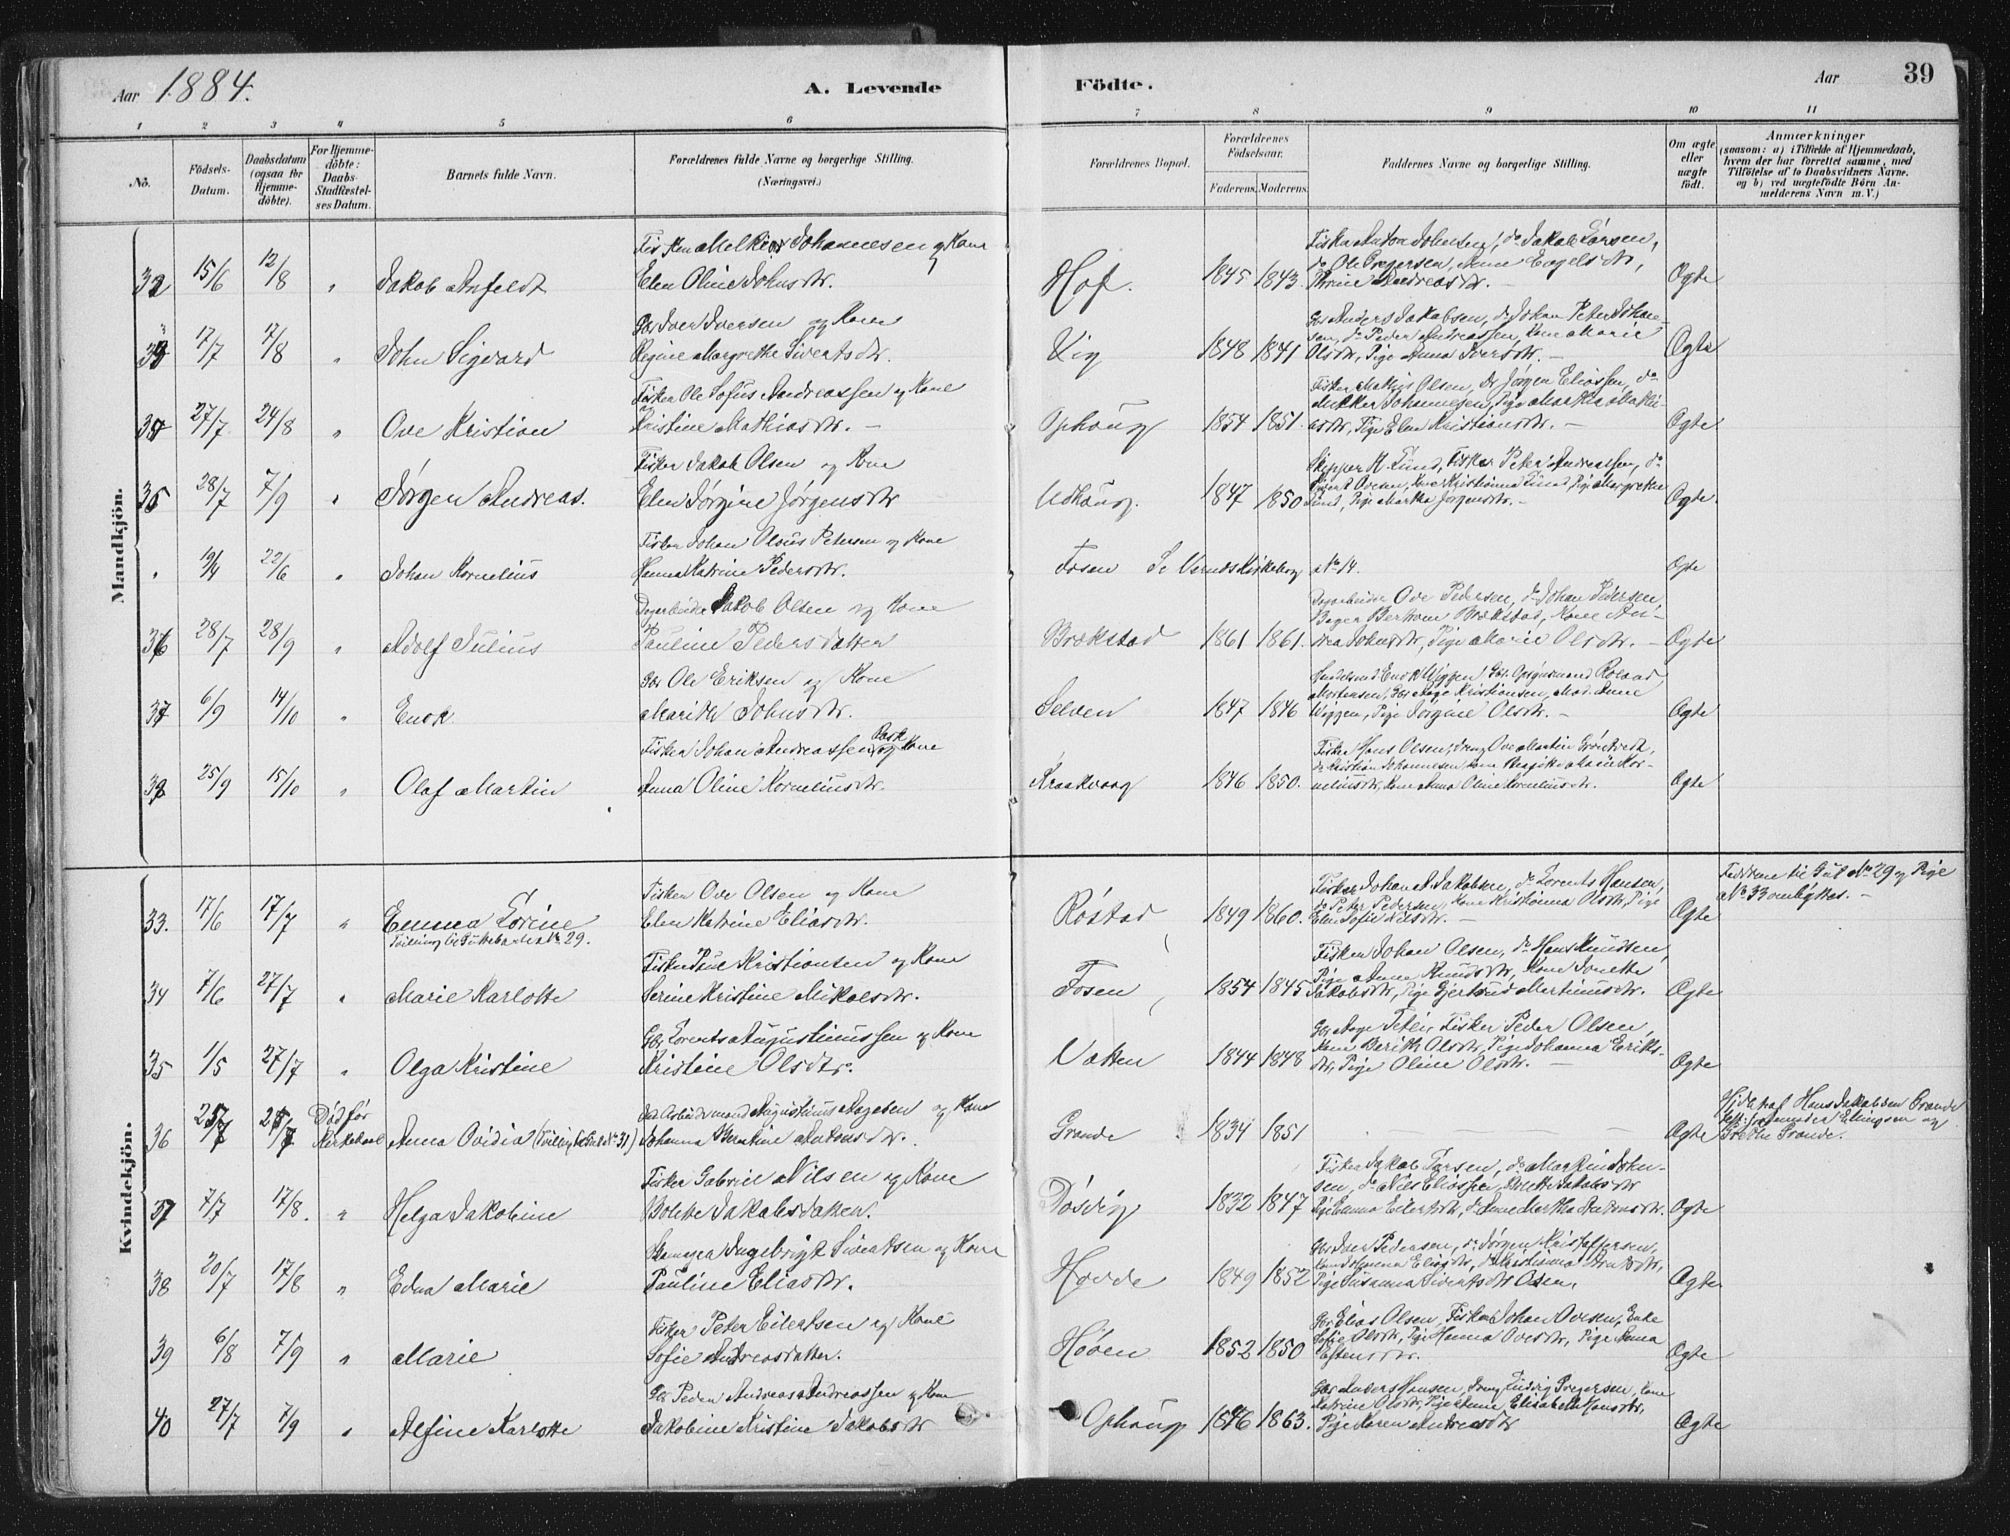 Aar 1884.
A. Levende
Födte.
Aar
39
1 2 3 4 5 6 7 8 9 10 11
No.
Födsels-
Datum.
Daabsdatum
(ogsaa for
Hjemme-
döbte).
For Hjemme-
döbte:
Daabs-
Stadfæstel-
ses Datum.
Barnets fulde Navn.
Forældrenes fulde Navne og borgerlige Stilling.
(Næringsvei.)
Forældrenes Bopæl.
Forældrenes
Födselsaar.
Faderens. Moderens.
Faddernes Navne og borgerlige Stilling.
Om ægte
eller
uægte
födt.
Anmærkninger
(saasom: a) i Tilfælde af Hjemmedaab,
hvem der har forrettet samme, med
Tilföielse af to Daabsvidners Navne.
og b) ved uægtefödte Börn An-
melderens Navn m.V.)
Mandkjön.
32 15/6 12/8 " Jakob Anfeldt
Fisker Melkior Johannesen og Kone
Elen Oline Johnsdtr.
Hof. 1845 1843.
Fisker Anton Johnsen, do Jakob Larsen,
do Ole Gregersen, Anne Engelsdtr,
Andreasdtr. —
Ægte
33 17/7 17/8 " John Sigvard
Gbr Iver Iversen og Kone
Regine Margrethe Sivertsdtr.
Vig 1848 1841
Gbr Anders Jakobsen, do Johan Peter Johan-
sen, do Peder Andreassen, Kone Marie
Olsdtr, Pige Anna Iversdtr. —
Ægte
34 27/7 24/8 " Ove Kristian
Fisker Ole Sofus Andreassen og Kone
Kristine Mathiasdtr. —
Ophoug 1854 1851.
Fisker Mathis Olsen, do Jørgen Eliassen, do
Johannesen, Pige Martha
Pige Elen Kristiansdtr. —
Ægte
35 28/7 7/9 " Jørgen Andreas.
Fisker Jakob Olsen og Kone
Elen Jørgine Jørgensdtr
Udhaug. 1847 1850
Skipper H. Lund, Fisker Peter Andreassen, do
Sivert Ovesen, Kone Kristianna Lund, Pige Margrethe
Lund, Pige Martha Jørgensdtr. —
Ægte.
" 19/4 22/6 " Johan Kornelius
Fisker Johan Olaus Petersen og Kone
Hanna Katrine Pedersdtr.
Fosen Se Kirkebog No 14.
Ægte
36 28/7 28/9 " Adolf Julius
Dagarbeider Jakob Olsen og Kone
Pauline Pedersdatter
Brækstad 1861 1861.
Dagarbeider Ove Pedersen, do Johan Pedersen,
Bager Brækstad, Kone An-
drea Johnsdtr, Pige Marie Olsdtr. —
Ægte
37 6/9 14/10 " Enok
Gbr Ole Eriksen og Kone
Marith Johnsdtr.
Selven 1847 1846
Enok Wiggen, Gbr.
Mortensen, Gbr Aage Kristiansen, Mad. Anne
Wiggen, Pige Jørgine Olsdtr. —
Ægte
38 25/9 15/10 " Olaf Martin
Fisker Johan Andreassen Rask og Kone
Anna Oline Korneliusdtr.
Kraakvaag 1846 1850.
Fisker Hans Olsen, dreng Ove Martin
do Kristian Johannesen, Kone Marie Kor-
neliusdtr, Kone Anna Oline Korneliusdtr.
Ægte
Kvindekjön.
33. 17/6 17/7 " Emma Lorine
Tvilling til Guttebarnet No 29.
Fisker Ove Olsen og Kone
Elen Katrine Eliasdtr.
Røstad 1849 1860.
Fisker Johan A. Jakobsen, do Lorents Hansen,
do Peter Pedersen, Kone Kristianna Olsdtr, Pige
Elen Sofie Nilsdtr. —
Ægte
Fadderne til Gut No 29 og Pige
No 33 ombyttes. —
34 7/6 27/7 " Marie Karlotte
Fisker Paul Kristiansen og Kone
Serine Kristine Mikalsdtr.
Fosen 1854 1845
Fisker Johan Olsen, do Hans Knudsen,
Pige Anna Knudsdtr, Kone Jonette
Jakobsdtr, Pige Gjertrud Martinusdtr.
Ægte
35 1/5 27/7 " Olga Kristine
Gbr Lorents Augustinussen og Kone
Kristine Olsdtr.
Vatten 1844 1848
Gbr Aage Fisker Peder Olsen,
Kone Berith Olsdtr, Pige Johanna Eriks-
dtr, Pige Oline Olsdtr. —
Ægte
36 25/7 25/7 Død før
Kirkedaab Anna Ovidia (Tvilling No 31)
Arbeidsmand Augustinus Aagesen og Kone
Johanna Antonsdtr.
Grande 1834 1851
— — — —
Ægte
Hjdbt af Hans Jakobsen Grande
Ellingsen og
Grande.
37 7/7 17/8. " Helga Jakobine
Fisker Gabriel Nilsen og Kone
Bolette Jakobsdatter.
Døsvig 1832 1847
Fisker Jakob Larsen, do Martin John-
sen, do Nils Eliassen, Anette Jakobsdtr
Pige Hanna Eilertsdtr, do Anne Martha Antonsdtr.
Ægte
38 20/7 17/8 " Edna Marie
Ingebrigt Sivertsen og Kone
Pauline Eliasdtr.
Hovde 1849 1852
Gbr Iver Pedersen, do Jørgen Kristoffersen,
Eliasdtr, do Kristianna
Pige Susanna Sivertsdtr Olsen.
Ægte
39 6/8 7/9 " Marie
Fisker Peter Eilertsen og Kone
Sofie Andreasdatter.
Høien 1852 1850
Gbr Elias Olsen, Fisker Johan Ovesen, Enke
Sofie Olsdtr, Pige Hanna Ovesdtr, Pige Anna
Estensdtr.
Ægte
40 27/7 7/9 " Alfine Karlotte
Gbr Peder Andreas Andreassen og Kone
Jakobine Kristine Jakobsdtr
Ophaug 1846 1863.
Gbr Anders Hansen, dreng Ludvig Gregersen, Kone
Katrine Olsdtr, Pige Anne Elisabeth Hansdtr,
Pige Karen Andreasdtr
Ægte